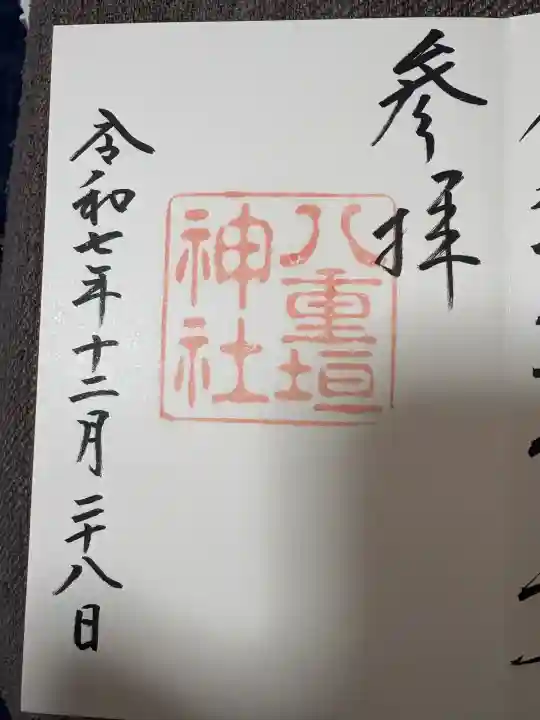 參拝
八重垣
神社
令和七年十二月二十八日